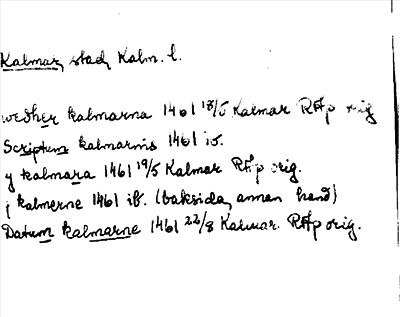 Kalmar, stad, Kalm. l.
wedher kalmarna 1461 18/5 Kalmar RAp orig
Scriptum kalmarnis 1461 ib.
y kalmara 1461 19/5 Kalmar RAp orig.
j kalmerne 1461 ib. (baksida, annan hand)
Datum kalmarne 1461 22/8 Kalmar RAp orig.